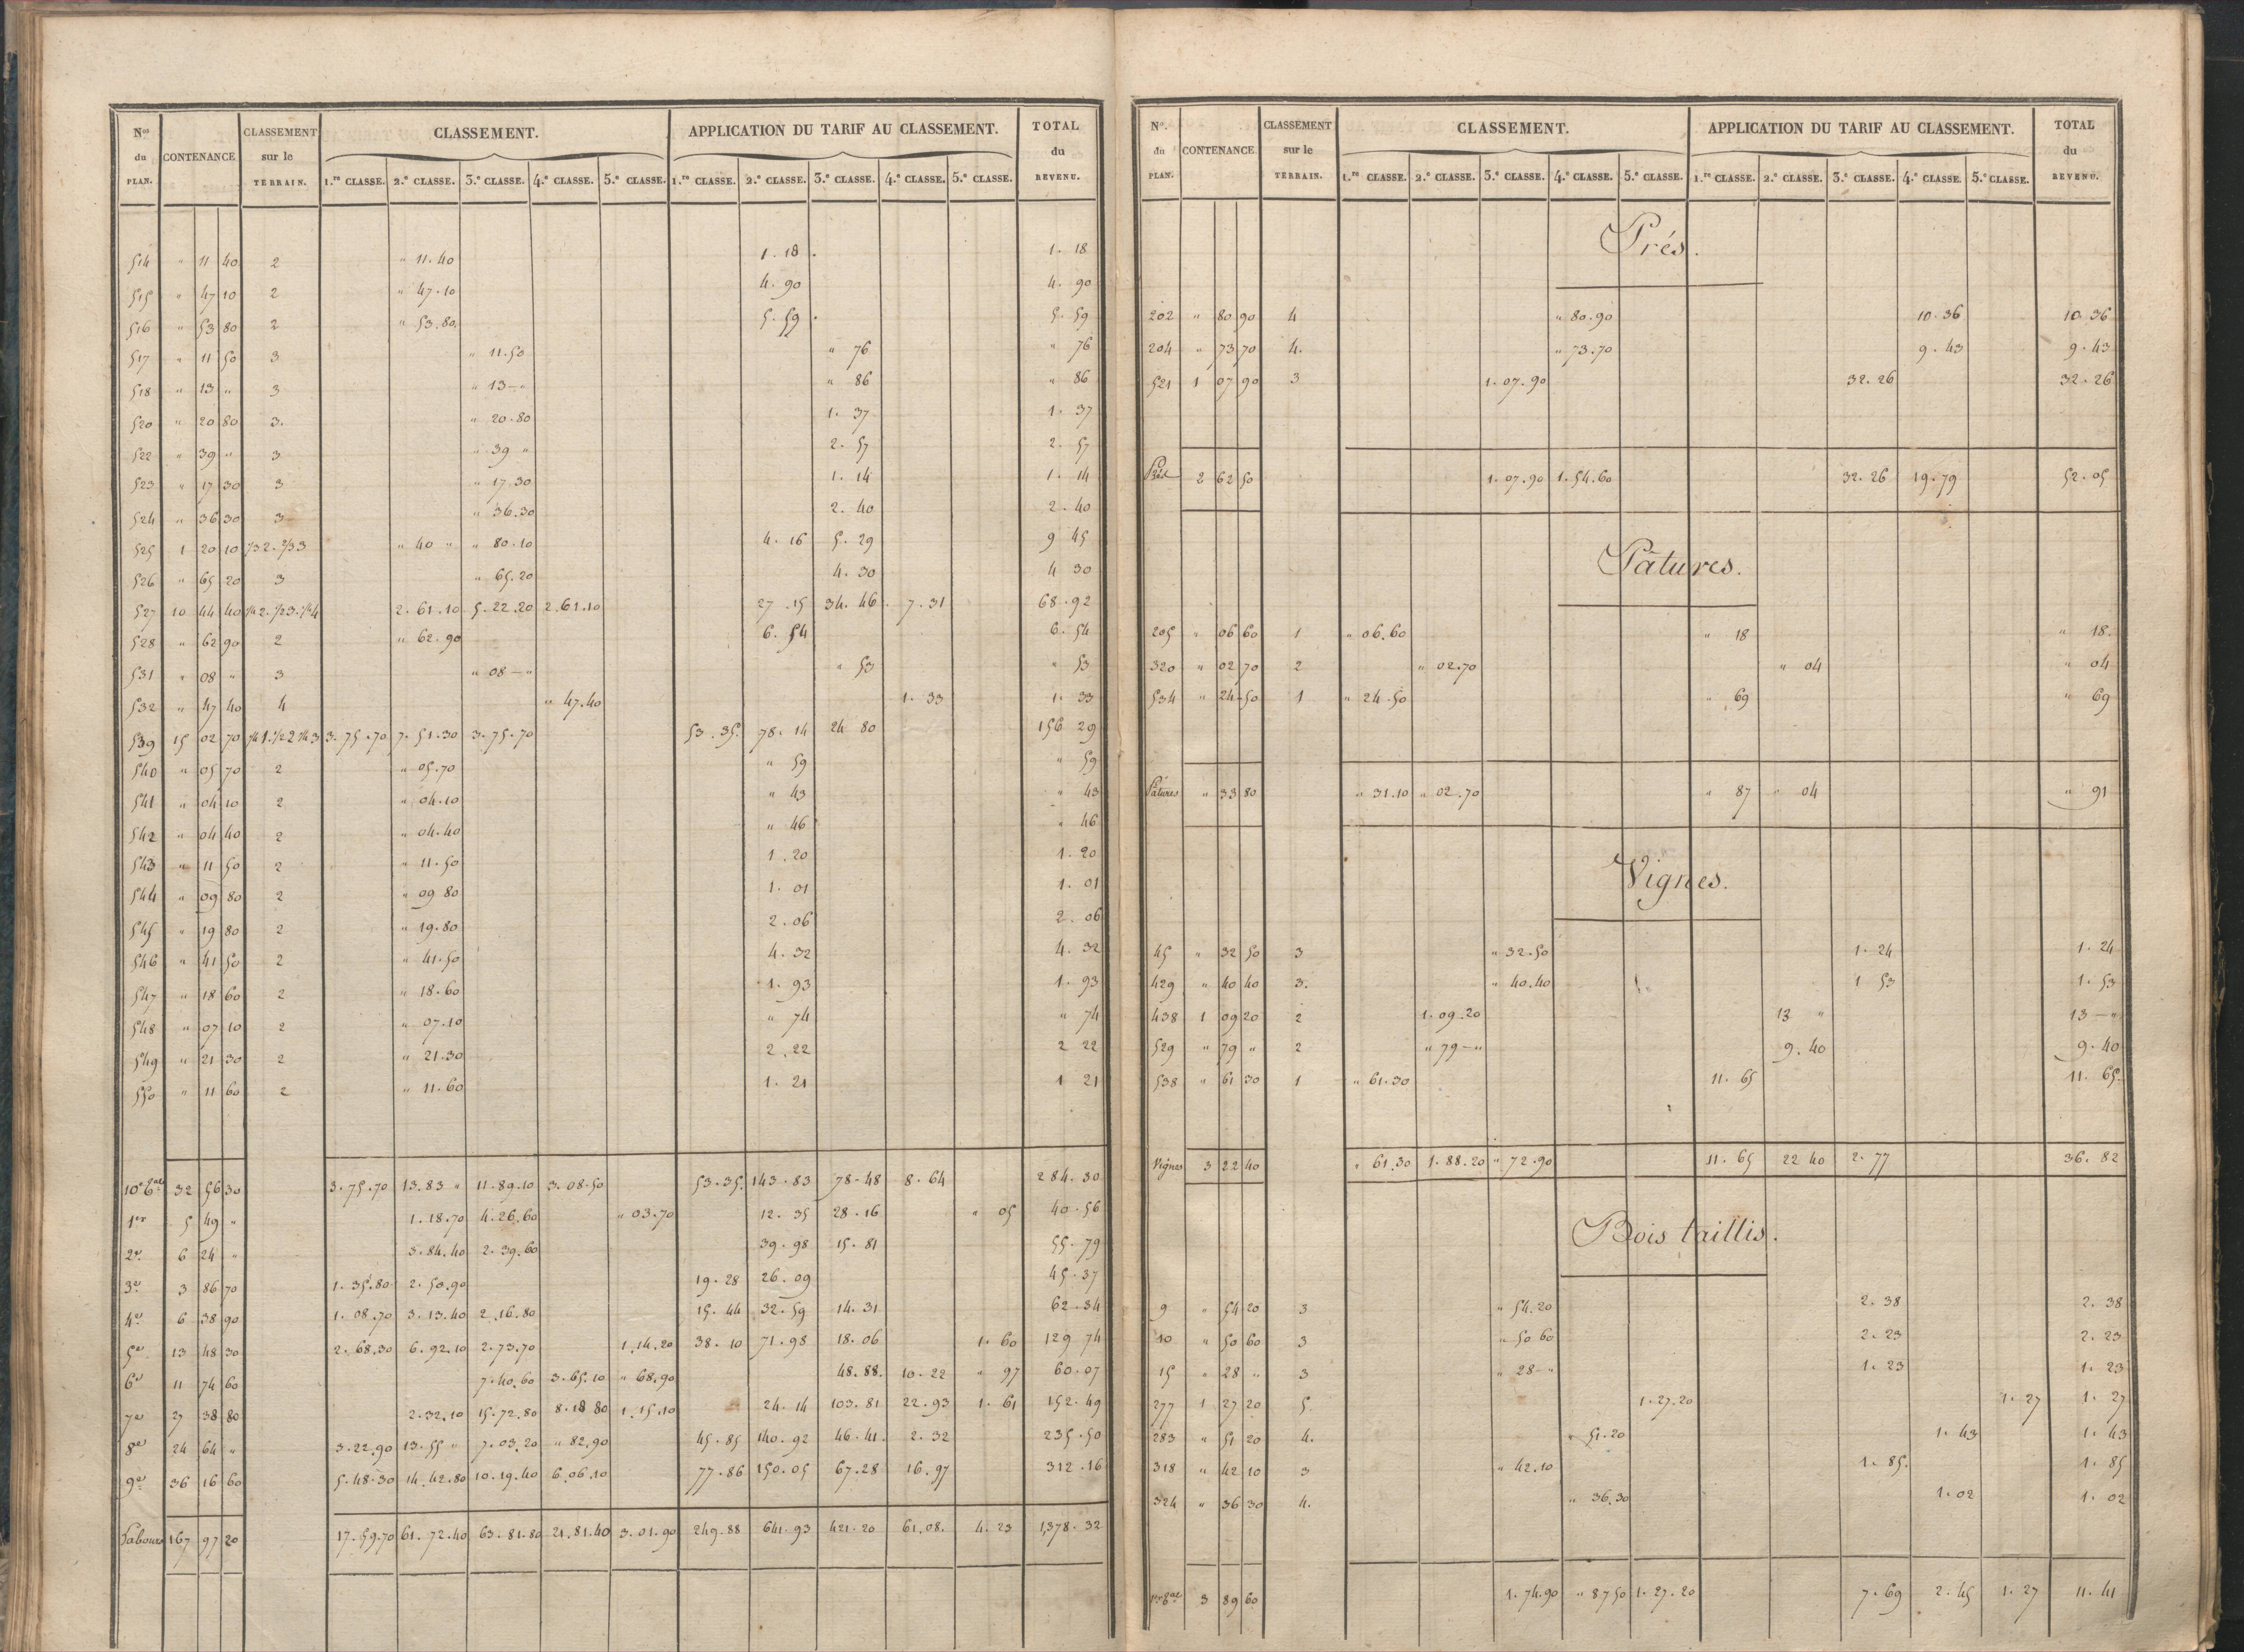 Nos du PLAN. CONTENANCE CLASSEMENT sur le TERRAIN. CLASSEMENT. APPLICATION DU TARIF AU CLASSEMENT. TOTAL du REVENU.
1.re CLASSE. 2.e CLASSE. 3.e CLASSE. 4.e CLASSE. 5.e CLASSE. 1.re CLASSE. 2.e CLASSE. 3.e CLASSE. 4.e CLASSE. 5.e CLASSE.
514 " 11 40 2 " 11.40 1.18 1.18
515 " 47 10 2 " 47.10 4.90 4.90
516 " 53 80 2 " 53.80 5.59 5.59
517 " 11 50 3 " 11.50 " 76 " 76
518 " 13 " 3 " 13 — " " 86 " 86
520 " 20 80 3. " 20.80 1.37 1.37
522 " 39 " 3 " 39 " 2.57 2.57
523 " 17 30 3 " 17.30 1.14 1.14
524 " 36 30 3 " 36.30 2.40 2.40
525 1 20 10 1/3 2. 2/3 3 " 40 " " 80.10 4.16 5.29 9 45
526 " 65 20 3 " 65.20 4.30 4 30
527 10 44 40 1/4 2. 1/2 3. 1/4 4 2.61.10 5.22.20 2.61.10 27.15 34.46 7.31 68.92
528 " 62 90 2 " 62.90 6.54 6.54
531 " 08 " 3 " 08 — " " 53 " 53
532 " 47 40 4 " 47.40 1.33 1.33
539 15 02 70 1/4 1. 1/2 2 1/4 3 3.75.70 7.51.30 3.75.70 53.35 78.14 24 80 156 29
540 " 05 70 2 " 05.70 " 59 " 59
541 " 04 10 2 " 04.10 " 43 " 43
542 " 04 40 2 " 04.40 " 46 " 46
543 " 11 50 2 " 11.50 1.20 1.20
544 " 09 80 2 " 09 80 1.01 1.01
545 " 19 80 2 " 19.80 2.06 2.06
546 " 41 50 2 " 41.50 4.32 4.32
547 " 18 60 2 " 18.60 1.93 1.93
548 " 07 10 2 " 07.10 " 74 " 74
549 " 21 30 2 " 21.30 2.22 2 22
550 " 11 60 2 " 11.60 1.21 1 21
32 56 30 3.75.70 13.83 " 11.89.10 3.08.50 53.35 143.83 78.48 8.64 284.30
1er 5 49 " 1.18.70 4.26.60 " 03.70 12.35 28.16 " 05 40.56
2e 6 24 " 3.84.40 2.39.60 39.98 15.81 55.79
3e 3 86 70 1.35.80 2.50.90 19.28 26.09 45.37
4e 6 38 90 1.08.70 3.13.40 2.16.80 15.44 32.59 14.31 62.34
5e 13 48 30 2.68.30 6.92.10 2.73.70 1.14.20 38.10 71.98 18.06 1.60 129 74
6e 11 74 60 7.40.60 3.65.10 " 68.90 48.88 10.22 " 97 60.07
7e 27 38 80 2.32.10 15.72.80 8.18 80 1.15.10 24.14 103.81 22.93 1.61 152.49
8e 24 64 " 3.22.90 13.55 " 7.03.20 " 82.90 45.85 140.92 46.41 2.32 235.50
9e 36 16 60 5.48.30 14.42.80 10.19.40 6.06.10 77.86 150.05 67.28 16.97 312.16
Labours 167 97 20 17.59.70 61.72.40 63.81.80 21.81.40 3.01.90 249.88 641.93 421.20 61.08 4.23 1,378.32
No. du PLAN. CONTENANCE CLASSEMENT sur le TERRAIN. CLASSEMENT. APPLICATION DU TARIF AU CLASSEMENT. TOTAL du REVENU.
1.re CLASSE. 2.e CLASSE. 3.e CLASSE. 4.e CLASSE. 5.e CLASSE. 1.re CLASSE. 2.e CLASSE. 3.e CLASSE. 4.e CLASSE. 5.e CLASSE.
Prés.
202 " 80 90 4 " 80.90 10.36 10.36
204 " 73 70 4. " 73.70 9.43 9.43
521 1 07 90 3 1.07.90 32.26 32.26
2 62 50 1.07.90 1.54.60 32.26 19.79 52.05
Pâtures.
205 " 06 60 1 " 06.60 " 18 " 18.
320 " 02 70 2 " 02.70 " 04 " 04
534 " 24 50 1 " 24.50 " 69 " 69
Pâtures " 33 80 " 31.10 " 02.70 " 87 " 04 " 91
Vignes.
45 " 32 50 3 " 32.50 1.24 1.24
429 " 40 40 3. " 40.40 1 53 1.53
438 1 09 20 2 1.09.20 13 " 13 — "
529 " 79 " 2 " 79 — " 9.40 9.40
538 " 61 30 1 " 61.30 11.65 11.65
Vignes 3 22 40 " 61.30 1.88.20 " 72.90 11.65 22 40 2.77 36.82
Bois taillis.
9 " 54 20 3 " 54.20 2.38 2.38
10 " 50 60 3 " 50 60 2.23 2.23
15 " 28 " 3 " 28 — " 1.23 1.23
277 1 27 20 5. 1.27.20 1.27 1.27
283 " 51 20 4. " 51.20 1.43 1.43
318 " 42 10 3 " 42.10 1.85. 1.85
324 " 36 30 4. " 36.30 1.02 1.02
3 89 60 1.74.90 " 87 50 1.27.20 7.69 2.45 1.27 11.41